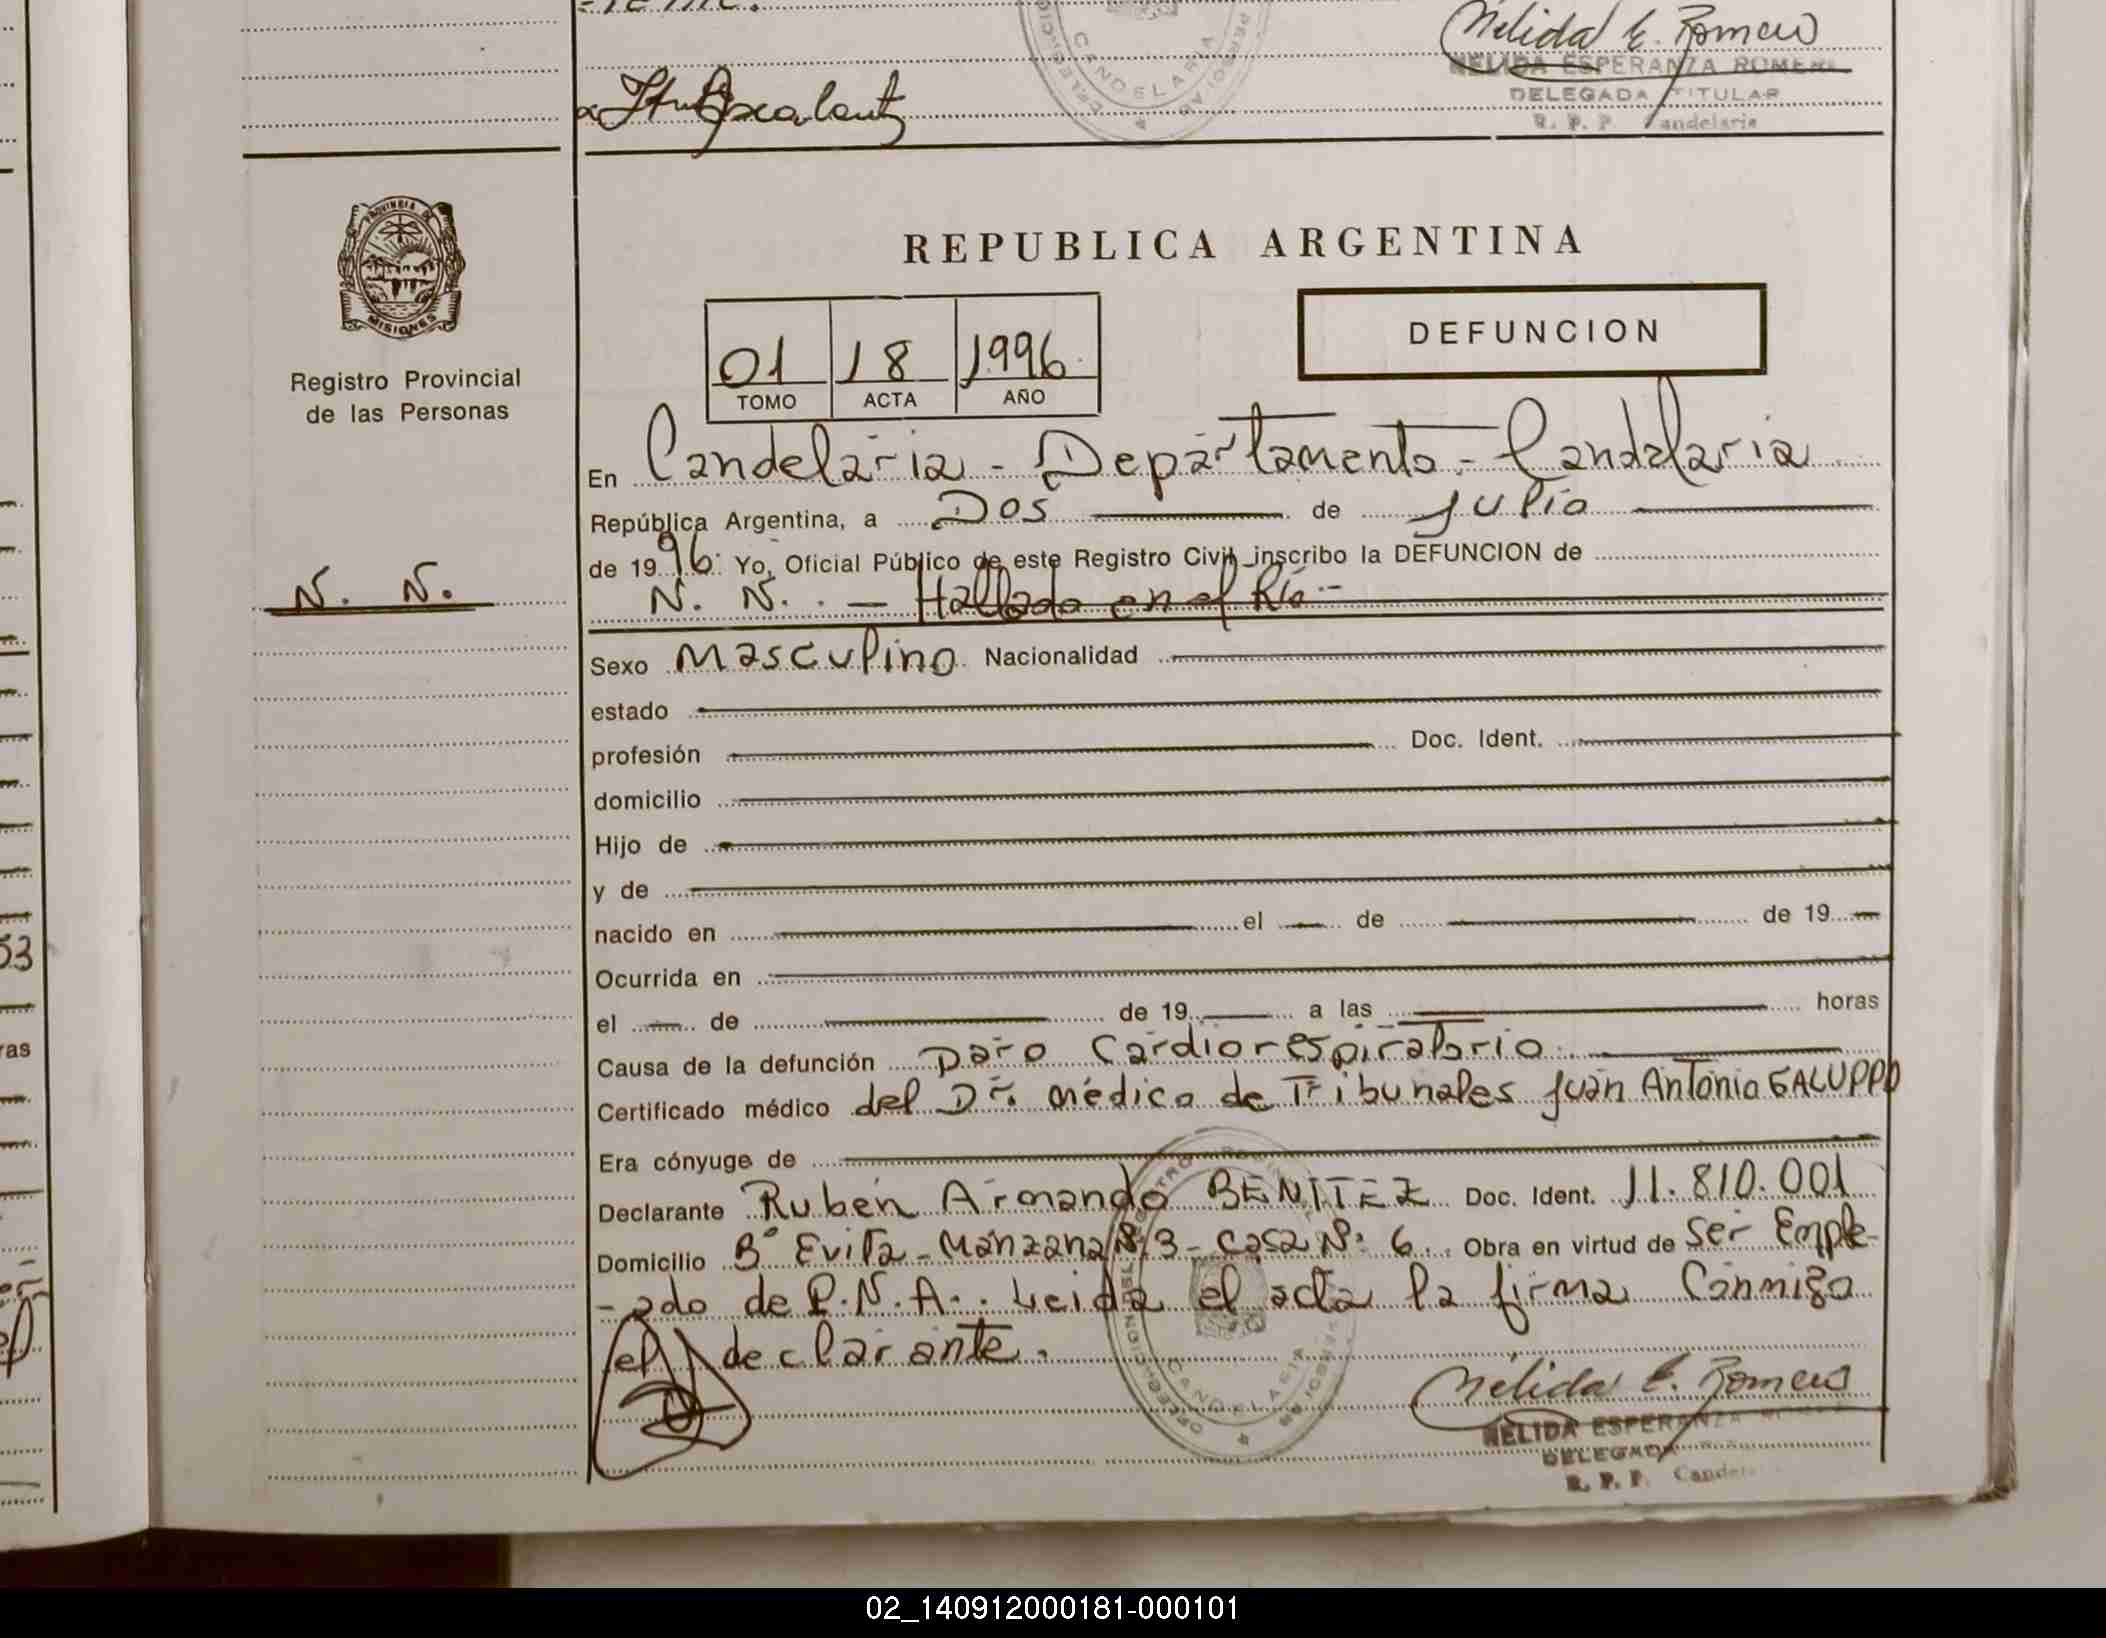 Nélida E. Romero
NELIDA ESPERANZA ROMERO
DELEGADA TITULAR
R. P. P. Candelaria
CANDELARIA
PROVINCIA DE
MISIONES
Registro Provincial
de las Personas
N. N.
REPUBLICA ARGENTINA
DEFUNCION
01 18 1996
TOMO ACTA AÑO
En Candelaria - Departamento - Candelaria
República Argentina, a Dos de Julio
de 1996 Yo, Oficial Público de este Registro Civil inscribo la DEFUNCION de
N. N. - Hallado en el Río -
Sexo Masculino Nacionalidad
estado
profesión Doc. Ident.
domicilio
Hijo de
y de
nacido en el de de 19
Ocurrida en
el de de 19 a las horas
Causa de la defunción Paro Cardiorespiratorio
Certificado médico del Dr. Médico de Tribunales Juan Antonio GALUPPO
Era cónyuge de
Declarante Rubén Armando BENITEZ Doc. Ident. 11.810.001
Domicilio B° Evita - Manzana N° 3 - Casa N° 6 Obra en virtud de Ser Emple-
-ado de P.N.A. Leida el acta la firma Conmigo
el declarante.
CANDELARIA
Nélida E. Romero
NELIDA ESPERANZA ROMERO
DELEGADA
R. P. P. Candelaria
53
ras
02_140912000181-000101